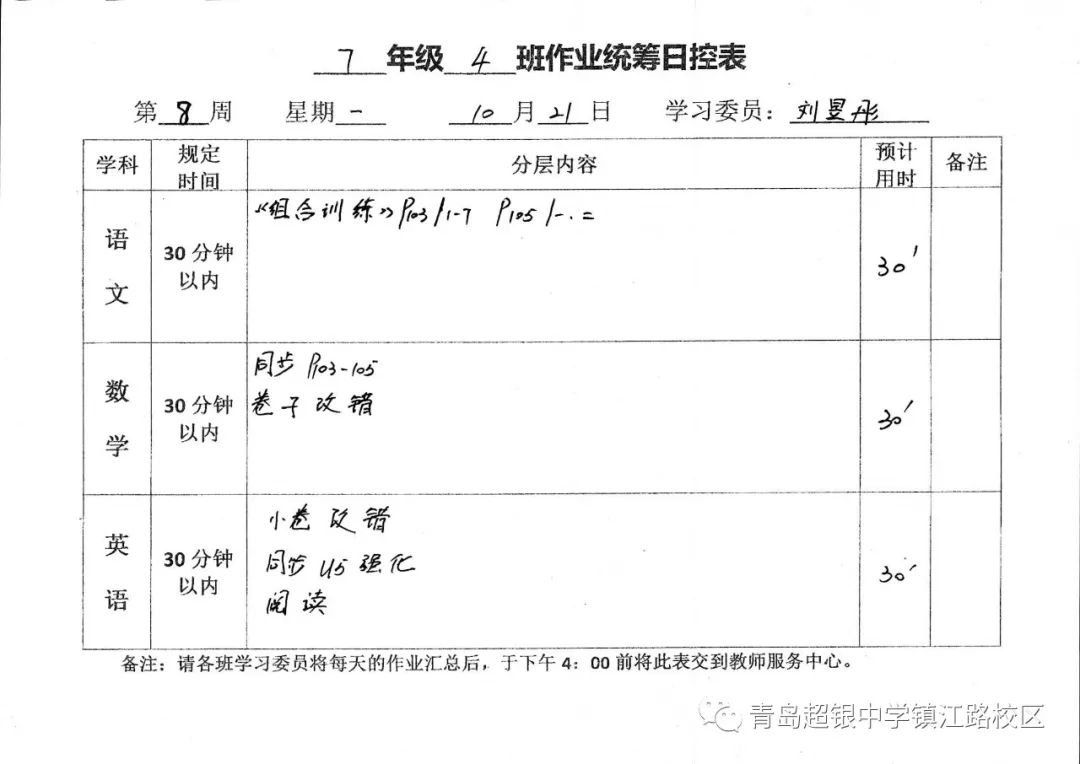 7 年级 4 班作业统筹日控表
第 8 周 星期 一 10 月 21 日 学习委员：刘昱彤
学科 规定时间 分层内容 预计用时 备注
语文 30 分钟以内 《组合训练》P103/1-7 P105/一.二 30'
数学 30 分钟以内 同步 P103-105 30'
卷子改错
英语 30 分钟以内 小卷改错 30'
同步 U5 强化
阅读
备注：请各班学习委员将每天的作业汇总后，于下午 4：00 前将此表交到教师服务中心。
青岛超银中学镇江路校区